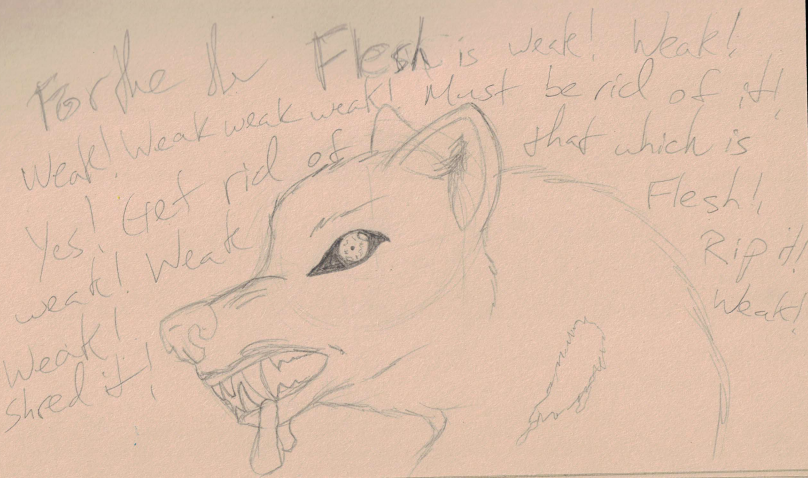 For the the Flesh is weak! Weak!
Weak! Weak weak weak! Must be rid of it!
Yes! Get rid of that which is
weak! Weak Flesh!
Weak! Rip it!
shred it! Weak!